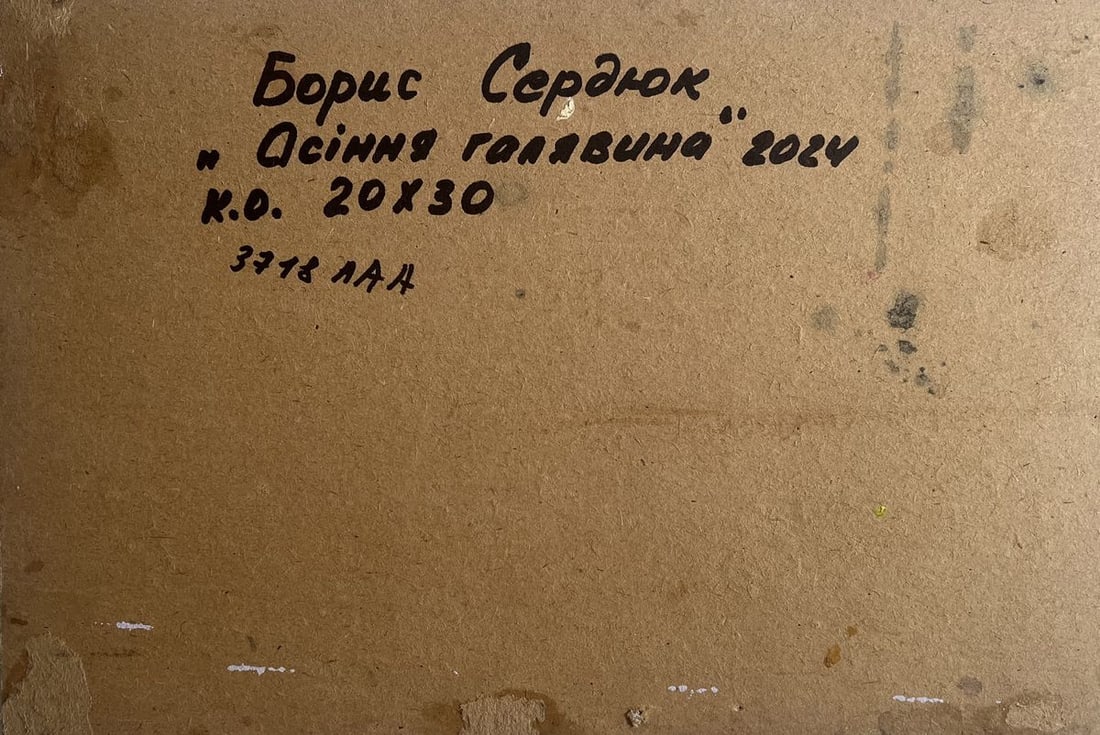 Борис Сердюк
„Осіння галявина“ 2024
к.о. 20х30
3718 ЛАА